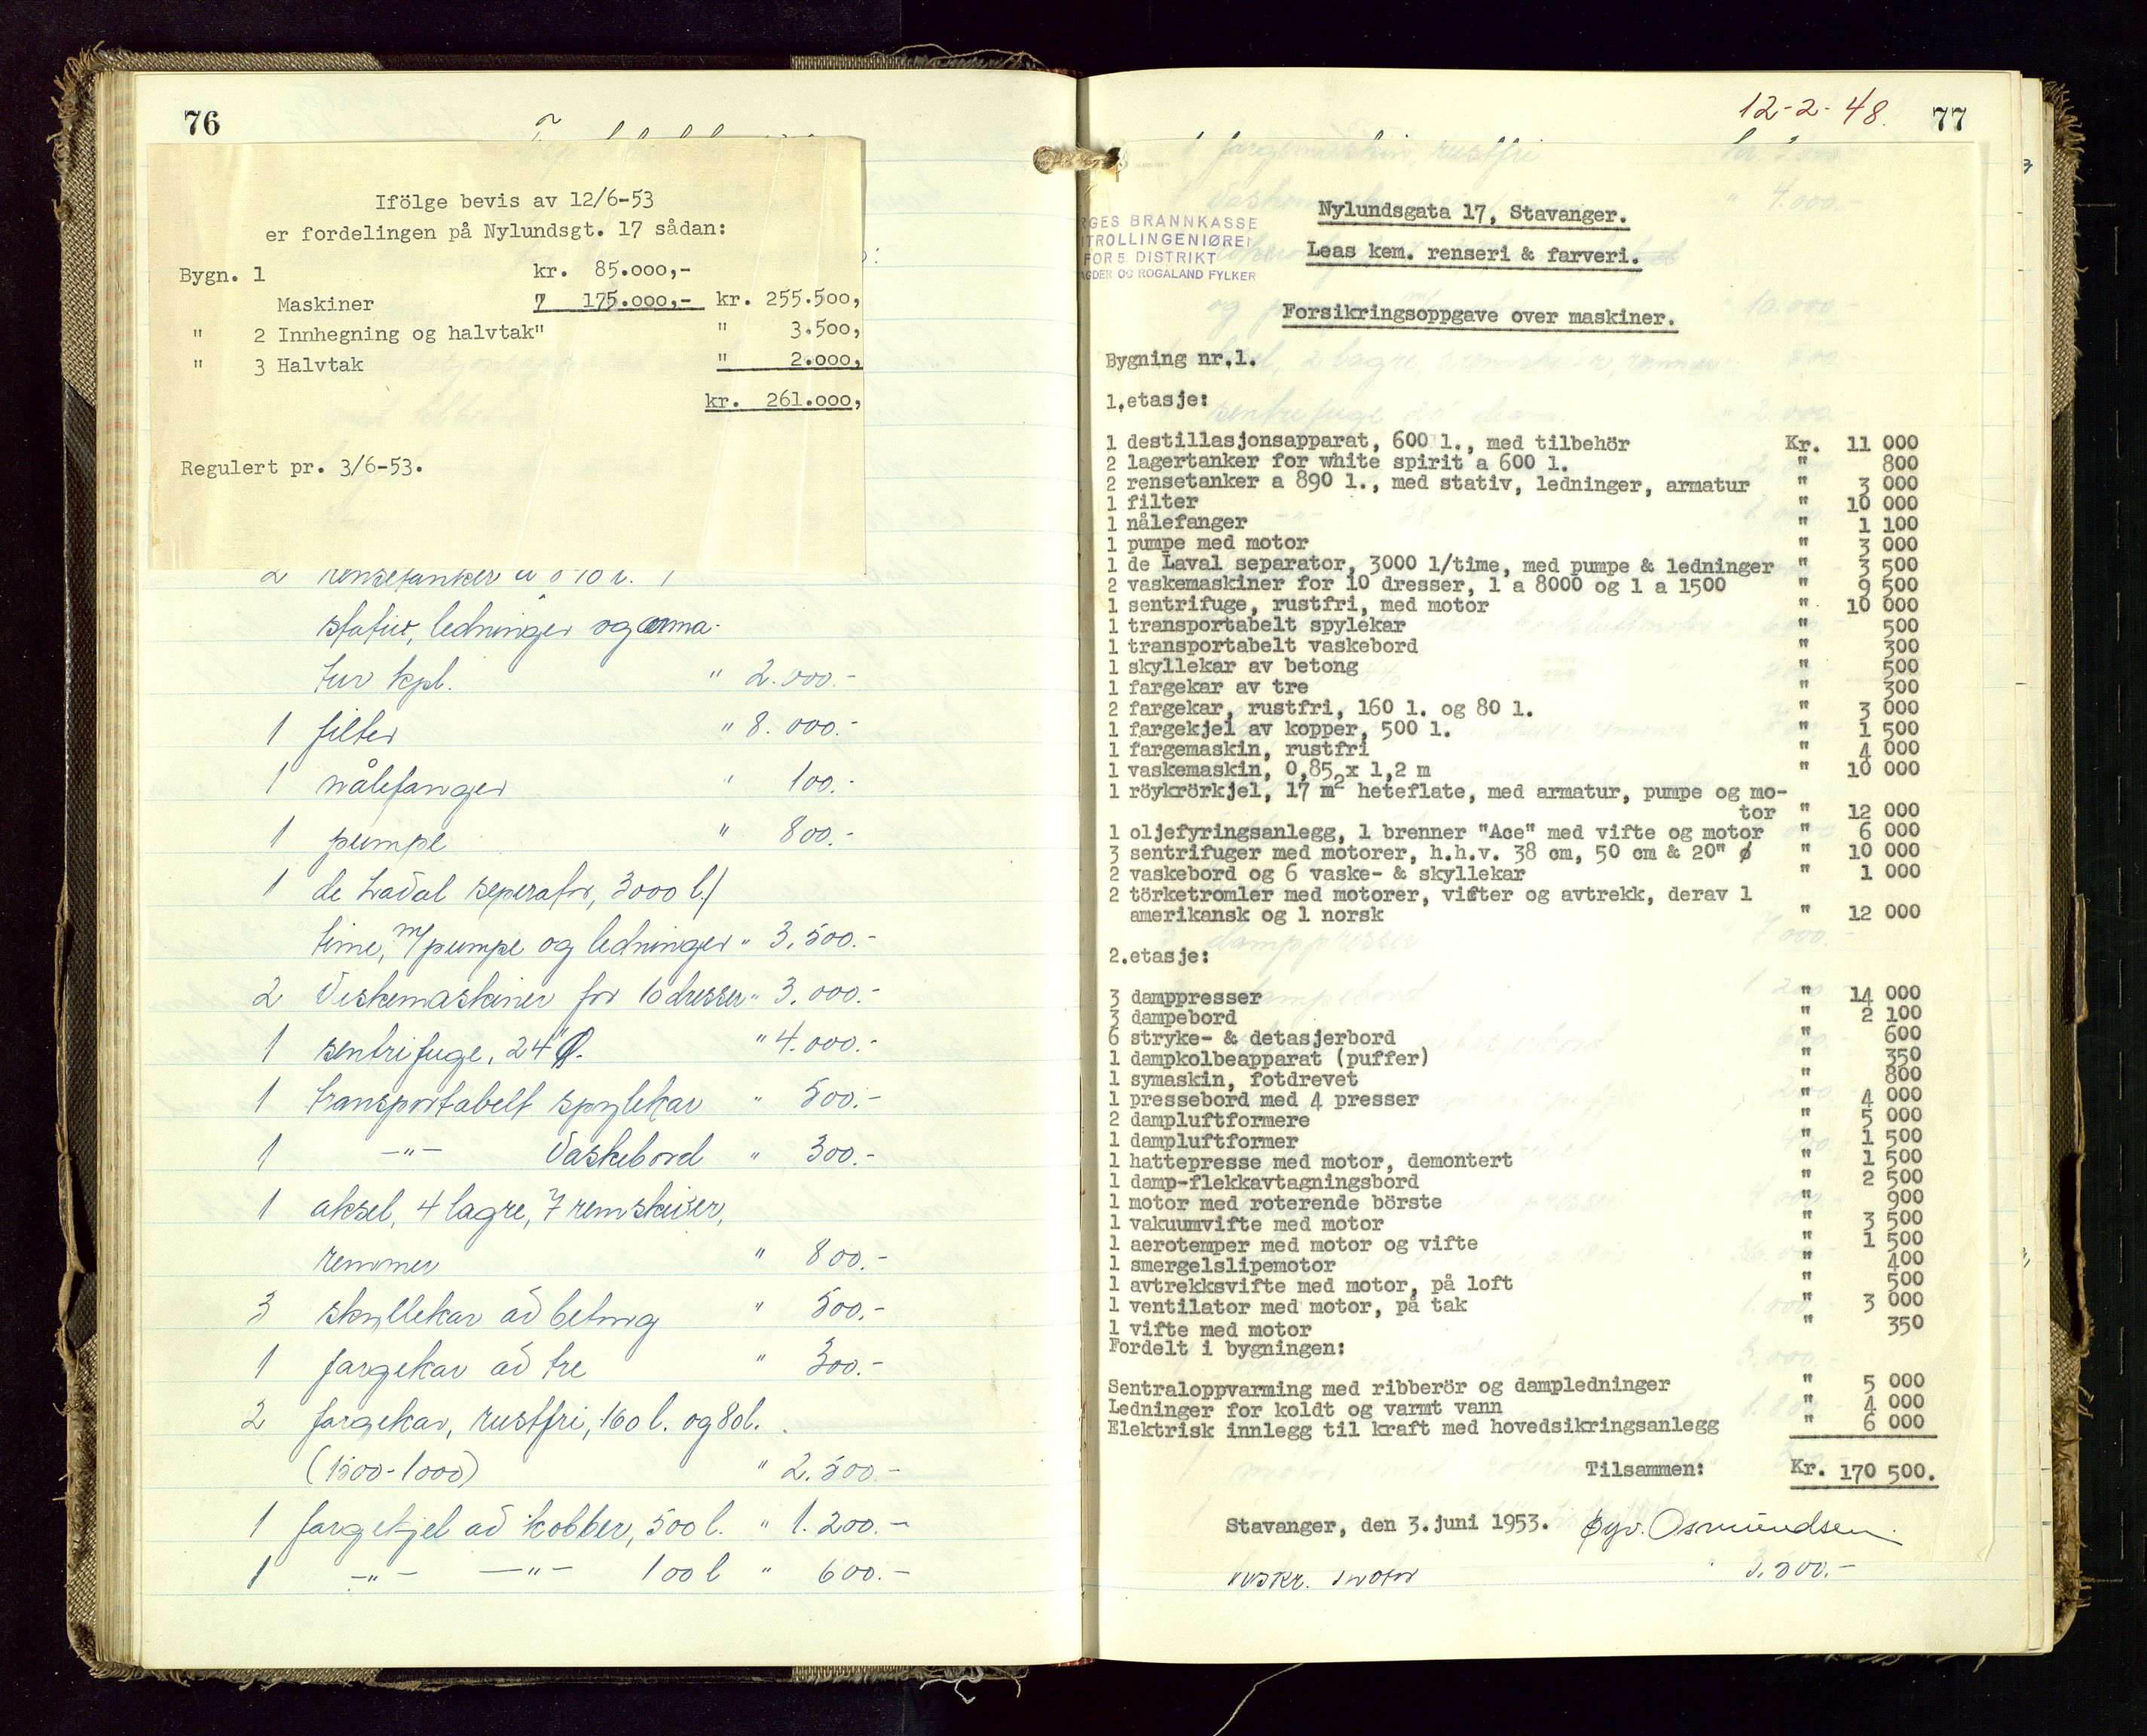 76
Ifölge bevis av 12/6-53
er fordelingen på Nylundsgt. 17 sådan:
Bygn. 1 kr. 85.000,-
Maskiner 7 175.000,- kr. 255.500,
" 2 Innhegning og halvtak" " 3.500,
" 3 Halvtak " 2.000,
kr. 261.000,
Regulert pr. 3/6-53.
2 rensetanker a 890 l.
stativ, ledninger og arma-
tur kpl. " 2.000.-
1 filter " 8.000.-
1 nålefanger " 100.-
1 pumpe " 800.-
1 de Laval seperator, 3000 l/
time, m/pumpe og ledninger " 3.500.-
2 Vaskemaskiner for 10 dresser " 3.000.-
1 sentrifuge, 24" Ø. " 4.000.-
1 transportabelt spylekar " 500.-
1 -"- Vaskebord " 300.-
1 aksel, 4 lagre, 7 remskiver,
remmer " 800.-
3 skyllekar av betong " 500.-
1 fargekar av tre " 300.-
2 fargekar, rustfri, 160 l. og 80 l.
(1500-1000) " 2.500.-
1 fargekjel av kobber, 500 l. " 1.200.-
1 -"- -"- 100 l " 600.-
12-2-48.
77
RGES BRANNKASSE
TROLLINGENIØREN
FOR 5. DISTRIKT
AGDER OG ROGALAND FYLKER
Nylundsgata 17, Stavanger.
Leas kem. renseri & farveri.
Forsikringsoppgave over maskiner.
Bygning nr.1.
1.etasje:
1 destillasjonsapparat, 600 l., med tilbehör Kr. 11 000
2 lagertanker for white spirit a 600 l. " 800
2 rensetanker a 890 l., med stativ, ledninger, armatur " 3 000
1 filter " 10 000
1 nålefanger " 1 100
1 pumpe med motor " 3 000
1 de Laval separator, 3000 l/time, med pumpe & ledninger " 3 500
2 vaskemaskiner for 10 dresser, 1 a 8000 og 1 a 1500 " 9 500
1 sentrifuge, rustfri, med motor " 10 000
1 transportabelt spylekar " 500
1 transportabelt vaskebord " 300
1 skyllekar av betong " 500
1 fargekar av tre " 300
2 fargekar, rustfri, 160 l. og 80 l. " 3 000
1 fargekjel av kopper, 500 l. " 1 500
1 fargemaskin, rustfri " 4 000
1 vaskemaskin, 0,85 x 1,2 m " 10 000
1 röykrörkjel, 17 m2 heteflate, med armatur, pumpe og mo-
tor " 12 000
1 oljefyringsanlegg, 1 brenner "Ace" med vifte og motor " 6 000
3 sentrifuger med motorer, h.h.v. 38 cm, 50 cm & 20" ø " 10 000
2 vaskebord og 6 vaske- & skyllekar " 1 000
2 törketromler med motorer, vifter og avtrekk, derav 1
amerikansk og 1 norsk " 12 000
2.etasje:
3 damppresser " 14 000
3 dampebord " 2 100
6 stryke- & detasjerbord " 600
1 dampkolbeapparat (puffer) " 350
1 symaskin, fotdrevet " 800
1 pressebord med 4 presser " 4 000
2 dampluftformere " 5 000
1 dampluftformer " 1 500
1 hattepresse med motor, demontert " 1 500
1 damp-flekkavtagningsbord " 2 500
1 motor med roterende börste " 900
1 vakuumvifte med motor " 3 500
1 aerotemper med motor og vifte " 1 500
1 smergelslipemotor " 400
1 avtrekksvifte med motor, på loft " 500
1 ventilator med motor, på tak " 3 000
1 vifte med motor " 350
Fordelt i bygningen:
Sentraloppvarming med ribberör og dampledninger " 5 000
Ledninger for koldt og varmt vann " 4 000
Elektrisk innlegg til kraft med hovedsikringsanlegg " 6 000
Tilsammen: Kr. 170 500.
Stavanger, den 3.juni 1953. Øyv. Osmundsen
motor " 3.500.-